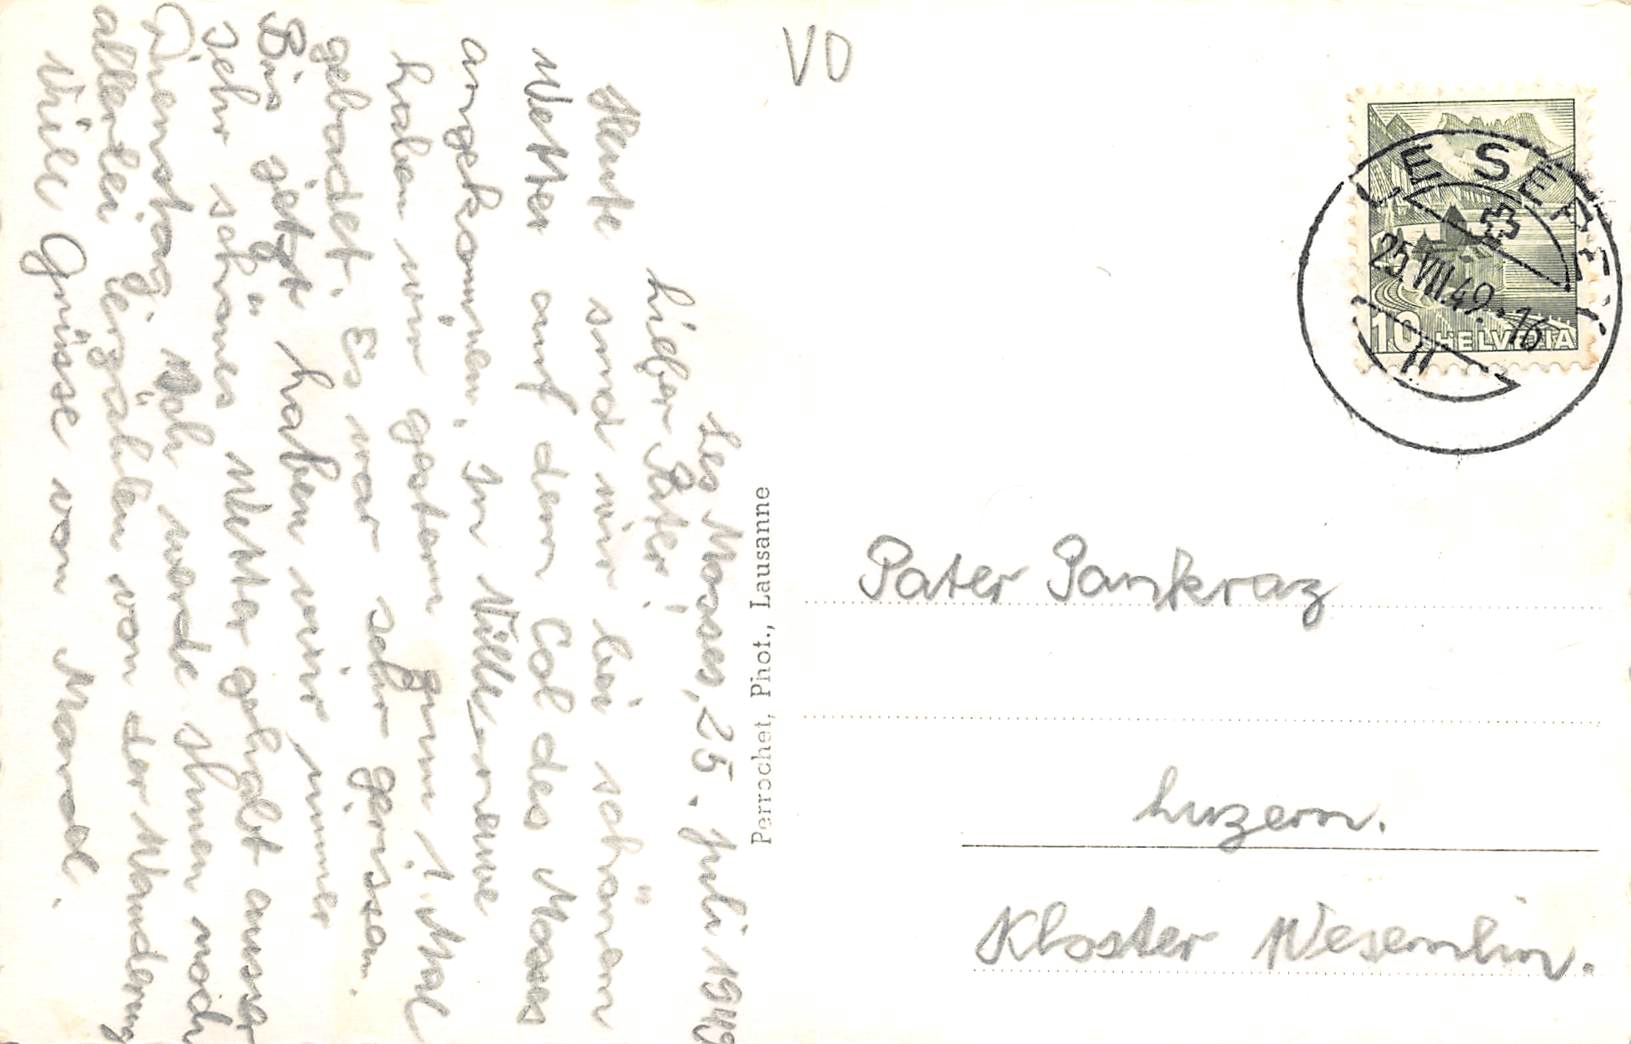 Les Mosses, 25. Juli 1949
Lieber Pater!
Heute sind wir bei schönem
Wetter auf dem Col des Mosses
angekommen. In Villeneuve
haben wir gestern zum 1. Mal
gebadet. Es war sehr
Bis jetzt haben wir immer
sehr schönes Wetter gehabt ausser
Dienstag. Ich werde Ihnen noch
allerlei erzählen von der Wanderung
Viele Grüsse von
VD
Perrochet, Phot., Lausanne
25.VII.49.-16
10 HELVETIA
Pater Pankraz
Luzern.
Kloster Wesemlin.